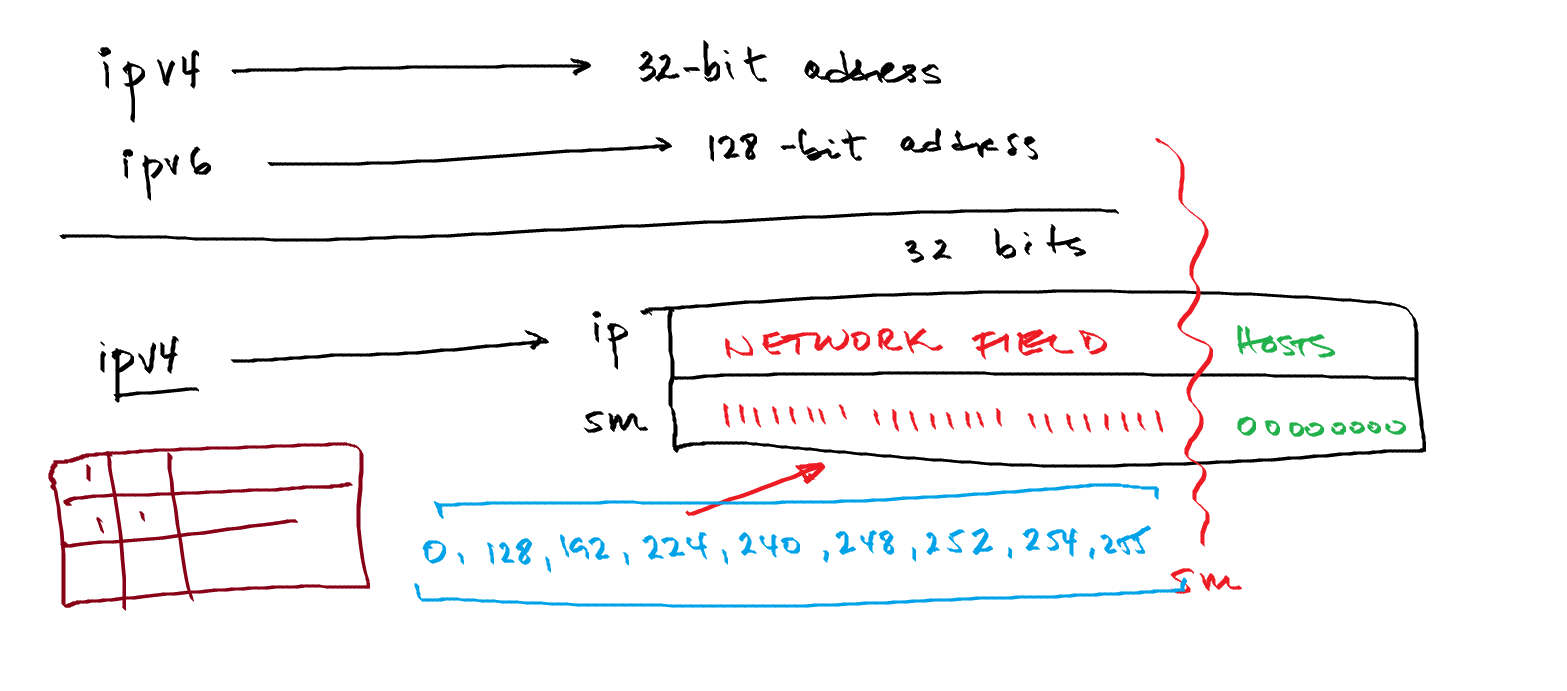 ipv4 → 32-bit address
ipv6 → 128-bit address
32 bits
ipv4 → ip NETWORK FIELD HOSTS
sm 11111111 11111111 11111111 00000000
1
1 1
0, 128, 192, 224, 240, 248, 252, 254, 255
sm